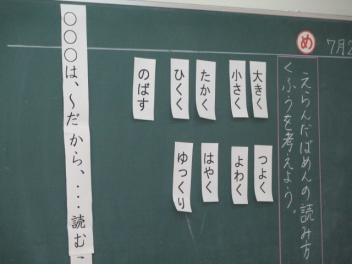 7月2
め
えらんだばめんの読み方
くふうを考えよう。
大きく
小さく
たかく
ひくく
のばす
つよく
よわく
はやく
ゆっくり
○○○は、〜だから、...読む